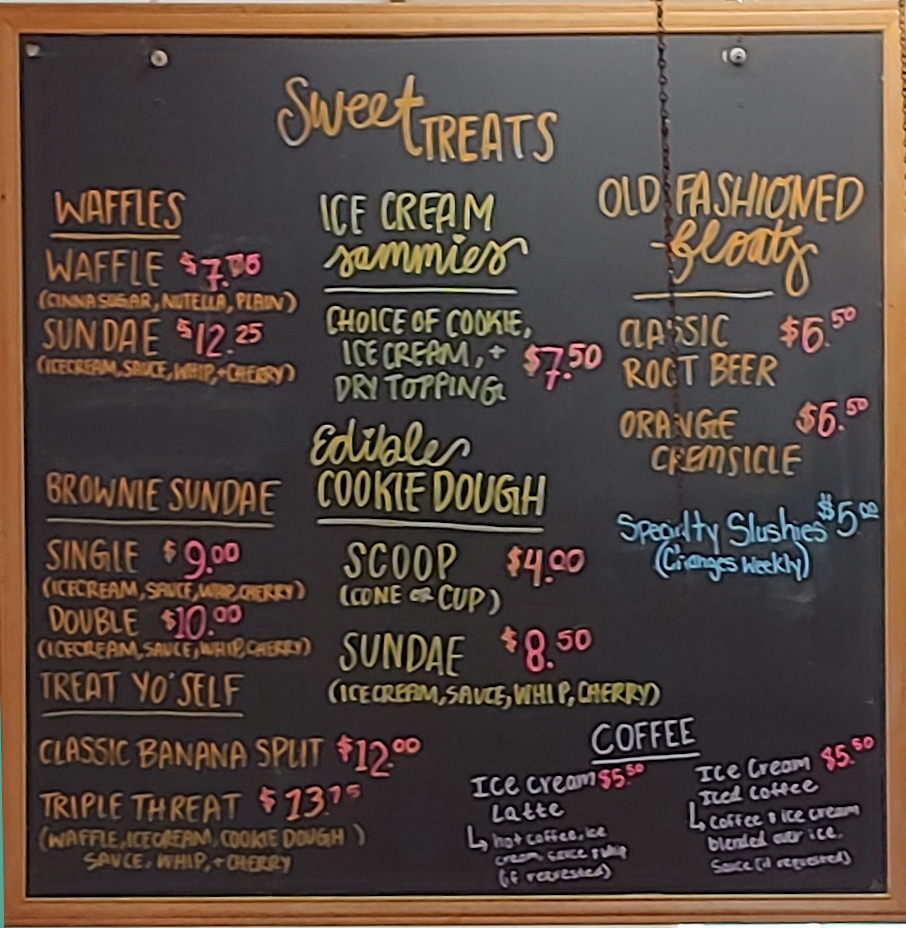 Sweet TREATS
WAFFLES
WAFFLE
(CINNASUGAR, NUTELLA, PLAIN)
SUNDAE $12.25
(ICECREAM, SAUCE, WHIP, + CHERRY)
BROWNIE SUNDAE
SINGLE $9.00
(ICECREAM, SAUCE, WHIP, CHERRY)
DOUBLE $10.00
(ICECREAM, SAUCE, WHIP, CHERRY)
TREAT YO'SELF
CLASSIC BANANA SPLIT $12.00
TRIPLE THREAT $13.75
(WAFFLE, ICECREAM, COOKIE DOUGH)
SAUCE, WHIP, + CHERRY
ICE CREAM
sammies
CHOICE OF COOKIE,
ICE CREAM, +
DRY TOPPING $7.50
Edibles
COOKIE DOUGH
SCOOP $4.00
(CONE OR CUP)
SUNDAE $8.50
(ICECREAM, SAUCE, WHIP, CHERRY)
OLD FASHIONED
floats
CLASSIC $6.50
ROOT BEER
ORANGE $6.50
CREMSICLE
Specialty Slushies $5.00
(Changes Weekly)
COFFEE
Ice Cream $5.50
Latte
hot coffee, ice
cream, sauce & whip
(if requested)
Ice Cream $5.50
Iced Coffee
Coffee & ice cream
blended over ice.
Sauce (if requested)